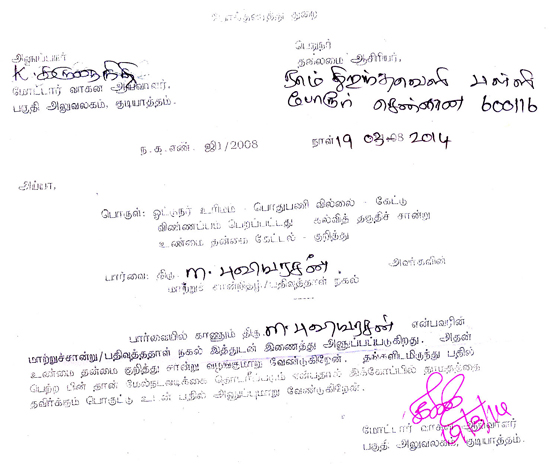 போக்குவரத்து துறை
அனுப்புனர்
பெறுநர்
தலைமை ஆசிரியர்,
K.
மோட்டார் வாகன ஆய்வாளர்,
பகுதி அலுவலகம், குடியாத்தம்.
பள்ளி
போரூர் சென்னை 600116
ந.க.எண். ஜி1/2008
நாள் 19 03 2014
அய்யா,
பொருள்: ஓட்டுநர் உரிமம் - பொதுபணி வில்லை - கேட்டு
விண்ணப்பம் பெறப்பட்டது கல்வித் தகுதிச் சான்று
உண்மை தன்மை கேட்டல் - குறித்து
பார்வை: திரு. M. புவியரசன். அவர்களின்
மாற்றுச் சான்றிதழ்/பதிவுத்தாள் நகல்
பார்வையில் காணும் திரு. M. புவியரசன் என்பவரின்
மாற்றுச்சான்று/பதிவுத்தாள் நகல் இத்துடன் இணைத்து அனுப்பப்படுகிறது. அதன்
உண்மை தன்மை குறித்து சான்று வழங்குமாறு வேண்டுகிறேன். தங்களிடமிருந்து பதில்
பெற்ற பின் தான் மேல்நடவடிக்கை தொடரப்படும் என்பதால் இக்கோப்பில் தாமதத்தை
தவிர்க்கும் பொருட்டு உடன் பதில் அனுப்புமாறு வேண்டுகிறேன்.
19/3/14
மோட்டார் வாகன ஆய்வாளர்
பகுதி அலுவலகம், குடியாத்தம்.